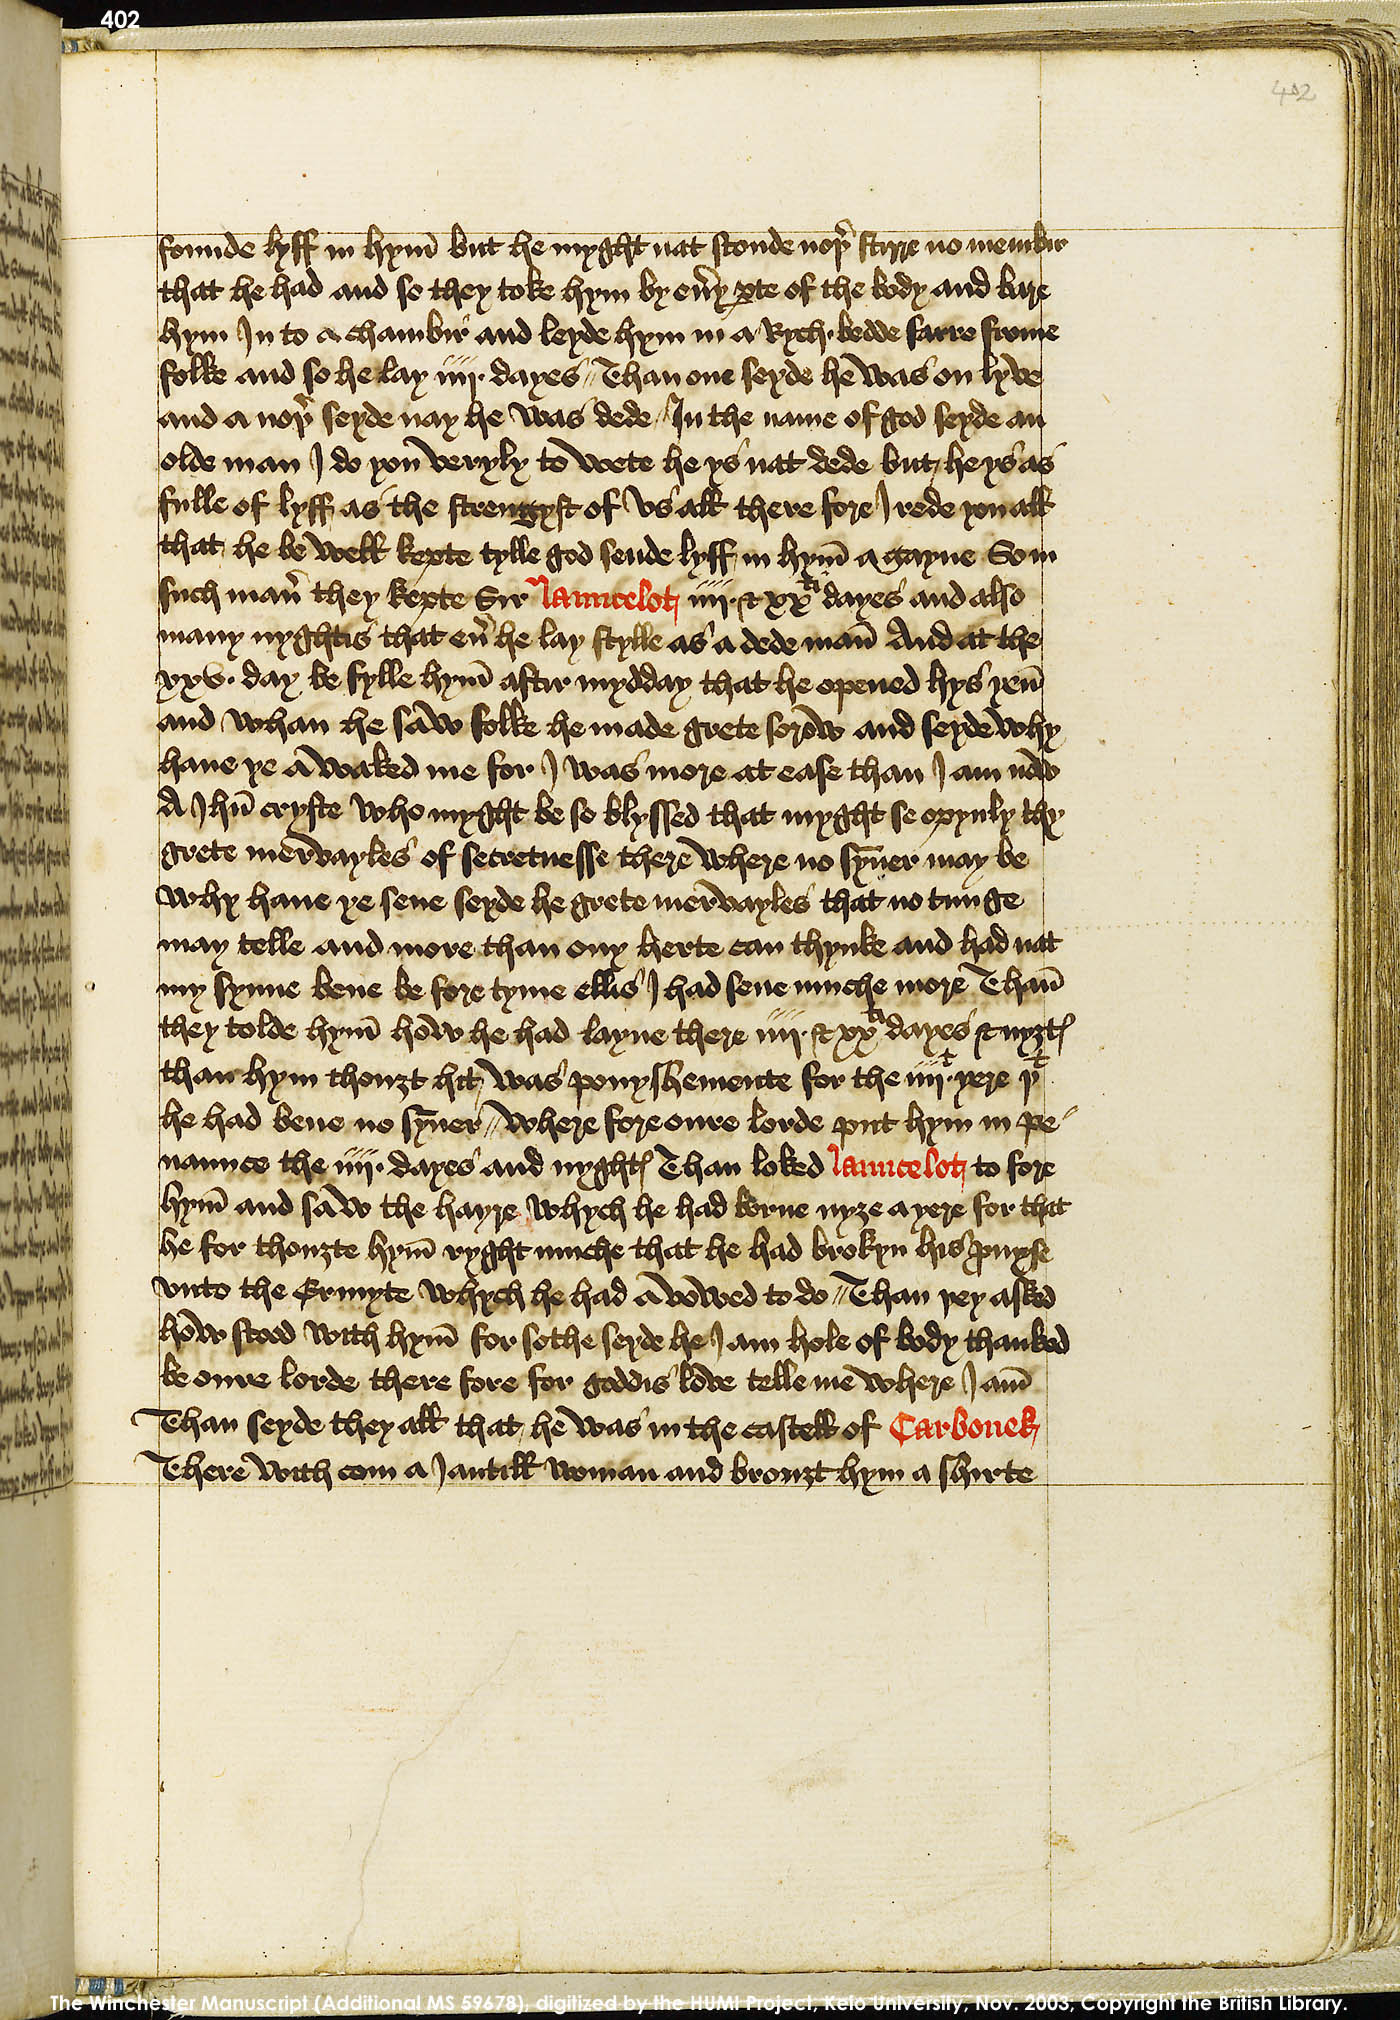 402
402
founde lyff in hym̄ but he myght nat stonde noþ̛ stirre no membir
that he had and so they toke hym by eūy ꝑte of the body and bare
hym In to a chambir and leyde hym in a Rych bedde farre frome
folke and so he lay iiij· dayes // Than one seyde he was on lyve
and a noþ̛ seyde nay he was dede / In the name of god seyde an
olde man I do you veryly to wete he ys nat dede but he ys as
fulle of lyff as the strengyst of vs all there fore I rede you all
that he be well kepte tylle god sende lyff in hym̄ a gayne So in
such man̄ they kepte Sir launcelot iiij· & xxti dayes and also
many nyghtis that eū he lay stylle as a dede man̄ And at the
xxv· day be fylle hym̄ aftir mydday that he opened hys yen̄
and whan he saw folke he made grete sorow and seyde why
haue ye a waked me for I was more at ease than I am now
A Ihū cryste who myght be so blyssed that myght se opynly thy
grete mervayles of secretnesse there where no syn̄er may be
why haue ye sene seyde he grete mervayles that no tunge
may telle and more than ony herte can thynke and had nat
my synne bene be fore tyme ellis I had sene muche more Than̄
they tolde hym̄ how he had layne there iiij· & xxti dayes & nyȝtꝭ
than hym thouȝt hit was ponyshemente for the iiij·t yere þt
he had bene no syn̄er // where fore oure lorde put hym in pe
naunce the iiij· dayes and nyghtꝭ Than loked launcelot to fore
hym̄ and saw the hayre whych he had borne nyȝe a yere for that
he for thouȝte hym̄ ryght muche that he had brokyn his ꝓmyse
vnto the Ermyte whych he had avowed to do // Than þey asked
how stood with hym̄ for sothe seyde he I am hole of body thanked
be oure lorde there fore for goddis love telle me where I am̄
Than seyde they all that he was in the castell of Carbonek
There with com a Iantill woman and brouȝt hym a shirte
The Winchester Manuscript (Additional MS 59678), digitized by the HUMI Project, Keio University, Nov. 2003, Copyright the British Library.